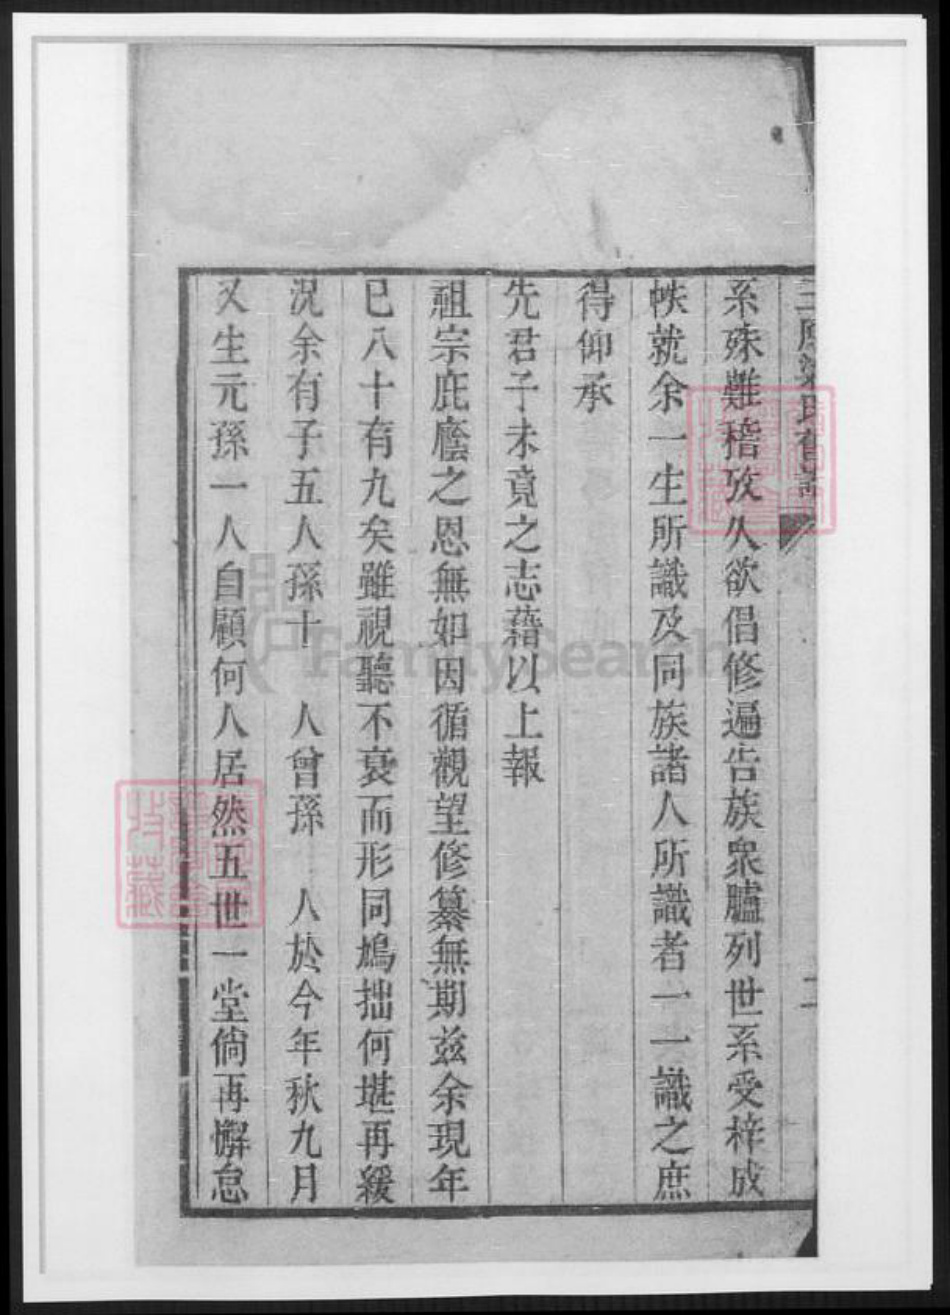 系殊難稽攷久欲倡修遍告族衆臚列世系受梓成
帙就余一生所識及同族諸人所識者一一識之庶
得仰承
先君子未竟之志藉以上報
祖宗庇廕之恩無如因循觀望修纂無期兹余現年
已八十有九矣雖視聽不衰而形同鳩拙何堪再緩
況余有子五人孫十 人曾孫 人於今年秋九月
又生元孫一人自顧何人居然五世一堂倘再懈怠
FamilySearch